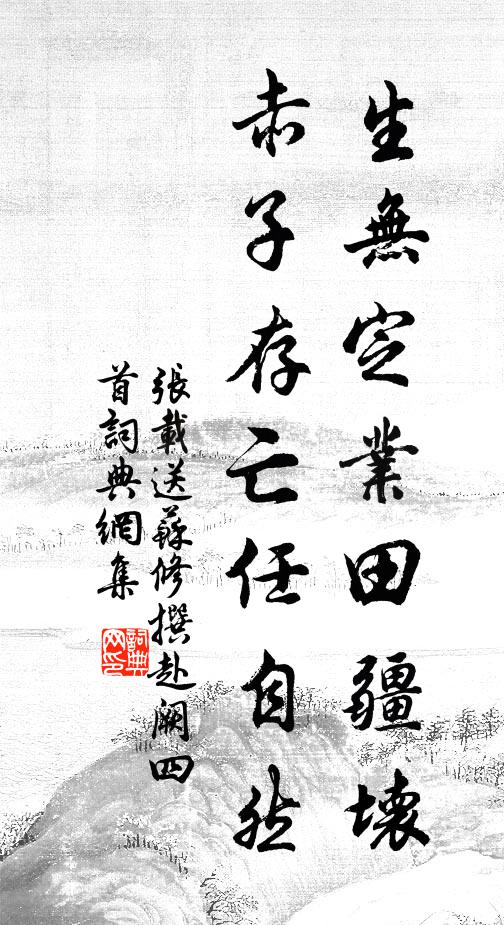 生無定業田疆壞
赤子存亡任自然
張載送蘇修撰赴闕四
首詞典網集
詞典网印